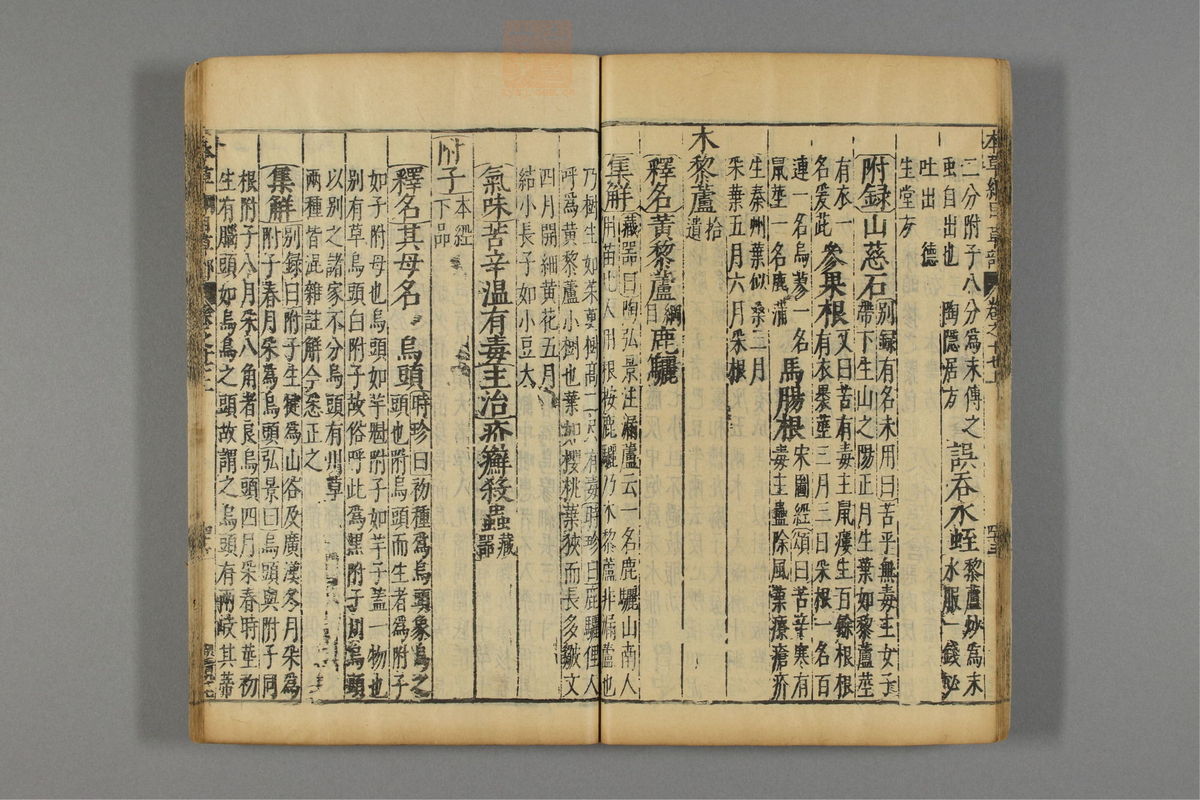 本草綱目草部 卷之十七上
二分附子八分爲末傳之
虫自出也 陶隱居方 誤吞水蛭 黎蘆炒爲末水服一錢必
吐出 德
生堂方
附録 山慈石 别録有名未用曰苦平無毒主女子
帶下生山之陽正月生葉如黎蘆莖
有衣 參果根 又曰苦有毒主鼠瘻生百餘根根
有衣裹莖三月三日采根一名百
連一名烏蓼一名
鼠莖一名鹿蒲 馬腸根 宋圖經頌曰苦辛寒有
毒主蠱除風葉療瘡疥
生秦州葉似桑三月
采葉五月六月采根
木黎蘆 拾遺
釋名 黄黎蘆 綱目 鹿驪
集解 藏器曰陶弘景注漏蘆云一名鹿驪山南人
用苗北人用根按鹿驪乃木黎蘆非漏蘆也
乃樹生如茱萸樹高二尺有毒時珍曰鹿驪俚人
呼爲黄黎蘆小樹也葉如櫻桃葉狹而長多皺文
四月開細黄花五月
結小長子如小豆大
氣味 苦辛温有毒 主治 疥癬殺蟲 藏器
附子 本經下品
釋名 其母名烏頭 時珍曰初種爲烏頭象烏之
頭也附烏頭而生者爲附子
如子附母也烏頭如芋魁附子如芋子蓋一物也
别有草烏頭白附子故俗呼此爲黑附子川烏頭
以别之諸家不分烏頭有川草
兩種皆混雜註解今悉正之
集解 别録曰附子生犍爲山谷及廣漢冬月采爲
附子春月采爲烏頭弘景曰烏頭與附子同
根附子八月采八角者良烏頭四月采春時莖初
生有腦頭如烏鳥之頭故謂之烏頭有兩岐其蒂
本草綱目草部